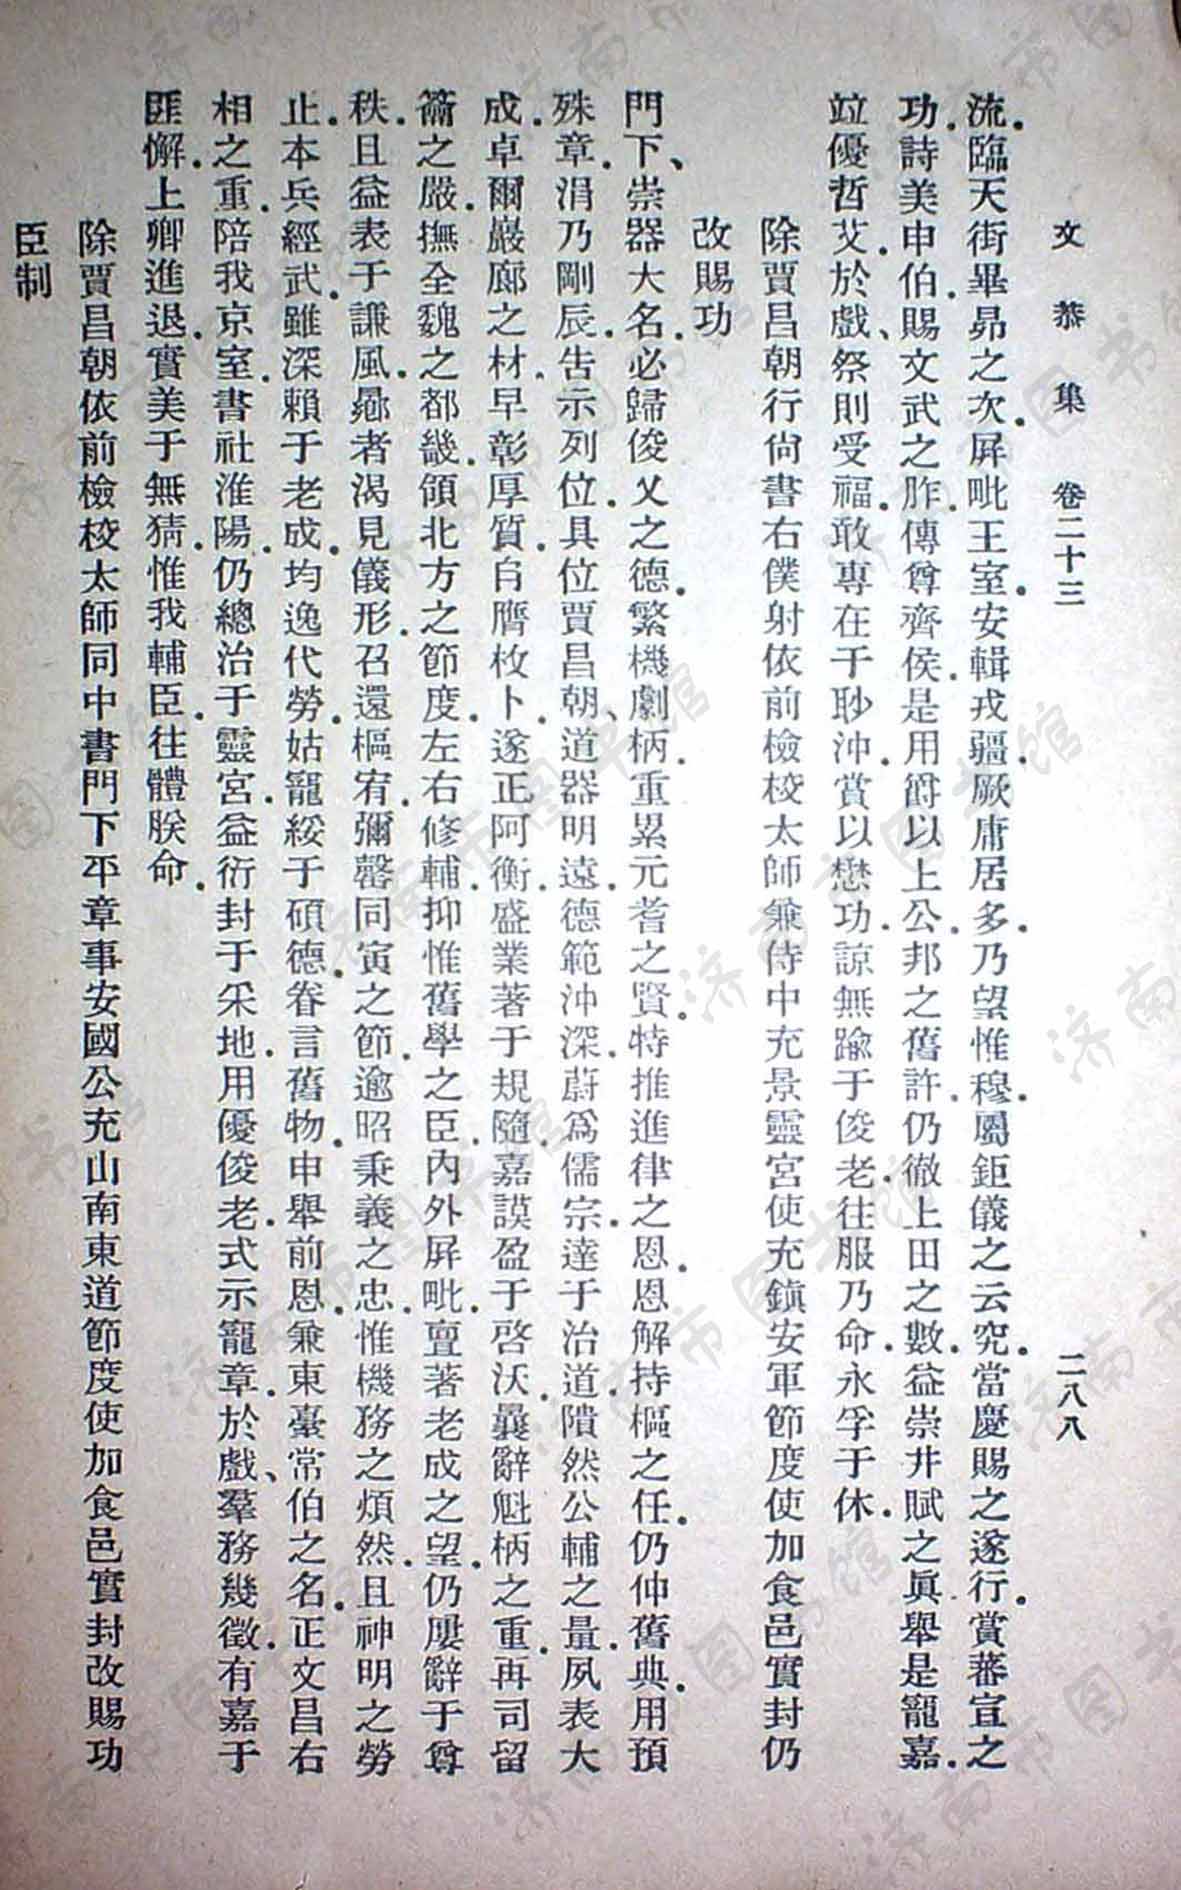 文恭集 卷二十三 二八八
流．臨天街畢昴之次．屏毗王室．安輯戎疆．厥庸居多．乃望惟穆．屬鉅儀之云究．當慶賜之遂行．賞蕃宣之
功．詩美申伯．賜文武之胙．傳尊齊侯．是用爵以上公．邦之舊許．仍徹上田之數．益崇井賦之眞．舉是寵嘉．
竝優哲艾．於戲、祭則受福．敢專在于眇沖．賞以懋功．諒無踰于俊老．往服乃命．永孚于休．
除賈昌朝行尙書右僕射依前檢校太師兼侍中充景靈宮使充鎭安軍節度使加食邑實封仍
改賜功
門下、崇器大名．必歸俊乂之德．繁機劇柄．重累元耆之賢．特推進律之恩．恩解持樞之任．仍伸舊典．用預
殊章．涓乃剛辰．吿示列位．具位賈昌朝、道器明遠．德範沖深．蔚爲儒宗．達于治道．隤然公輔之量．夙表大
成．卓爾巖廊之材．早彰厚質．自膺枚卜．遂正阿衡．盛業著于規隨．嘉謨盈于啓沃．曩辭魁柄之重．再司留
籥之嚴．撫全魏之都畿．領北方之節度．左右修輔．抑惟舊學之臣．內外屏毗．亶著老成之望．仍屢辭于尊
秩．且益表于謙風．曏者渴見儀形．召還樞宥．彌罄同寅之節．逾昭秉義之忠．惟機務之煩然．且神明之勞
止．本兵經武．雖深賴于老成．均逸代勞．姑寵綏于碩德．眷言舊物．申舉前恩．兼東臺常伯之名．正文昌右
相之重．陪我京室．書社淮陽．仍總治于靈宮．益衍封于采地．用優俊老．式示寵章．於戲、羣務幾徵．有嘉于
匪懈．上卿進退．實美于無猜．惟我輔臣．往體朕命．
除賈昌朝依前檢校太師同中書門下平章事安國公充山南東道節度使加食邑實封改賜功
臣制